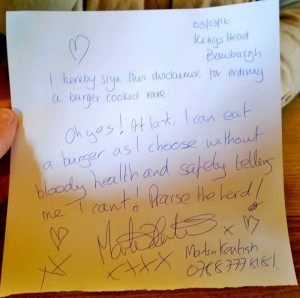 03/03/16
Kings Head
Bawburgh
I hereby sign this disclaimer, for ordering
a burger cooked rare.
Oh yes! At last, I can eat
a burger as I choose without
bloody health and safety telling
me I can't! Praise the Lord!
x
x x
x x x x
Martin Kentish
07887778181